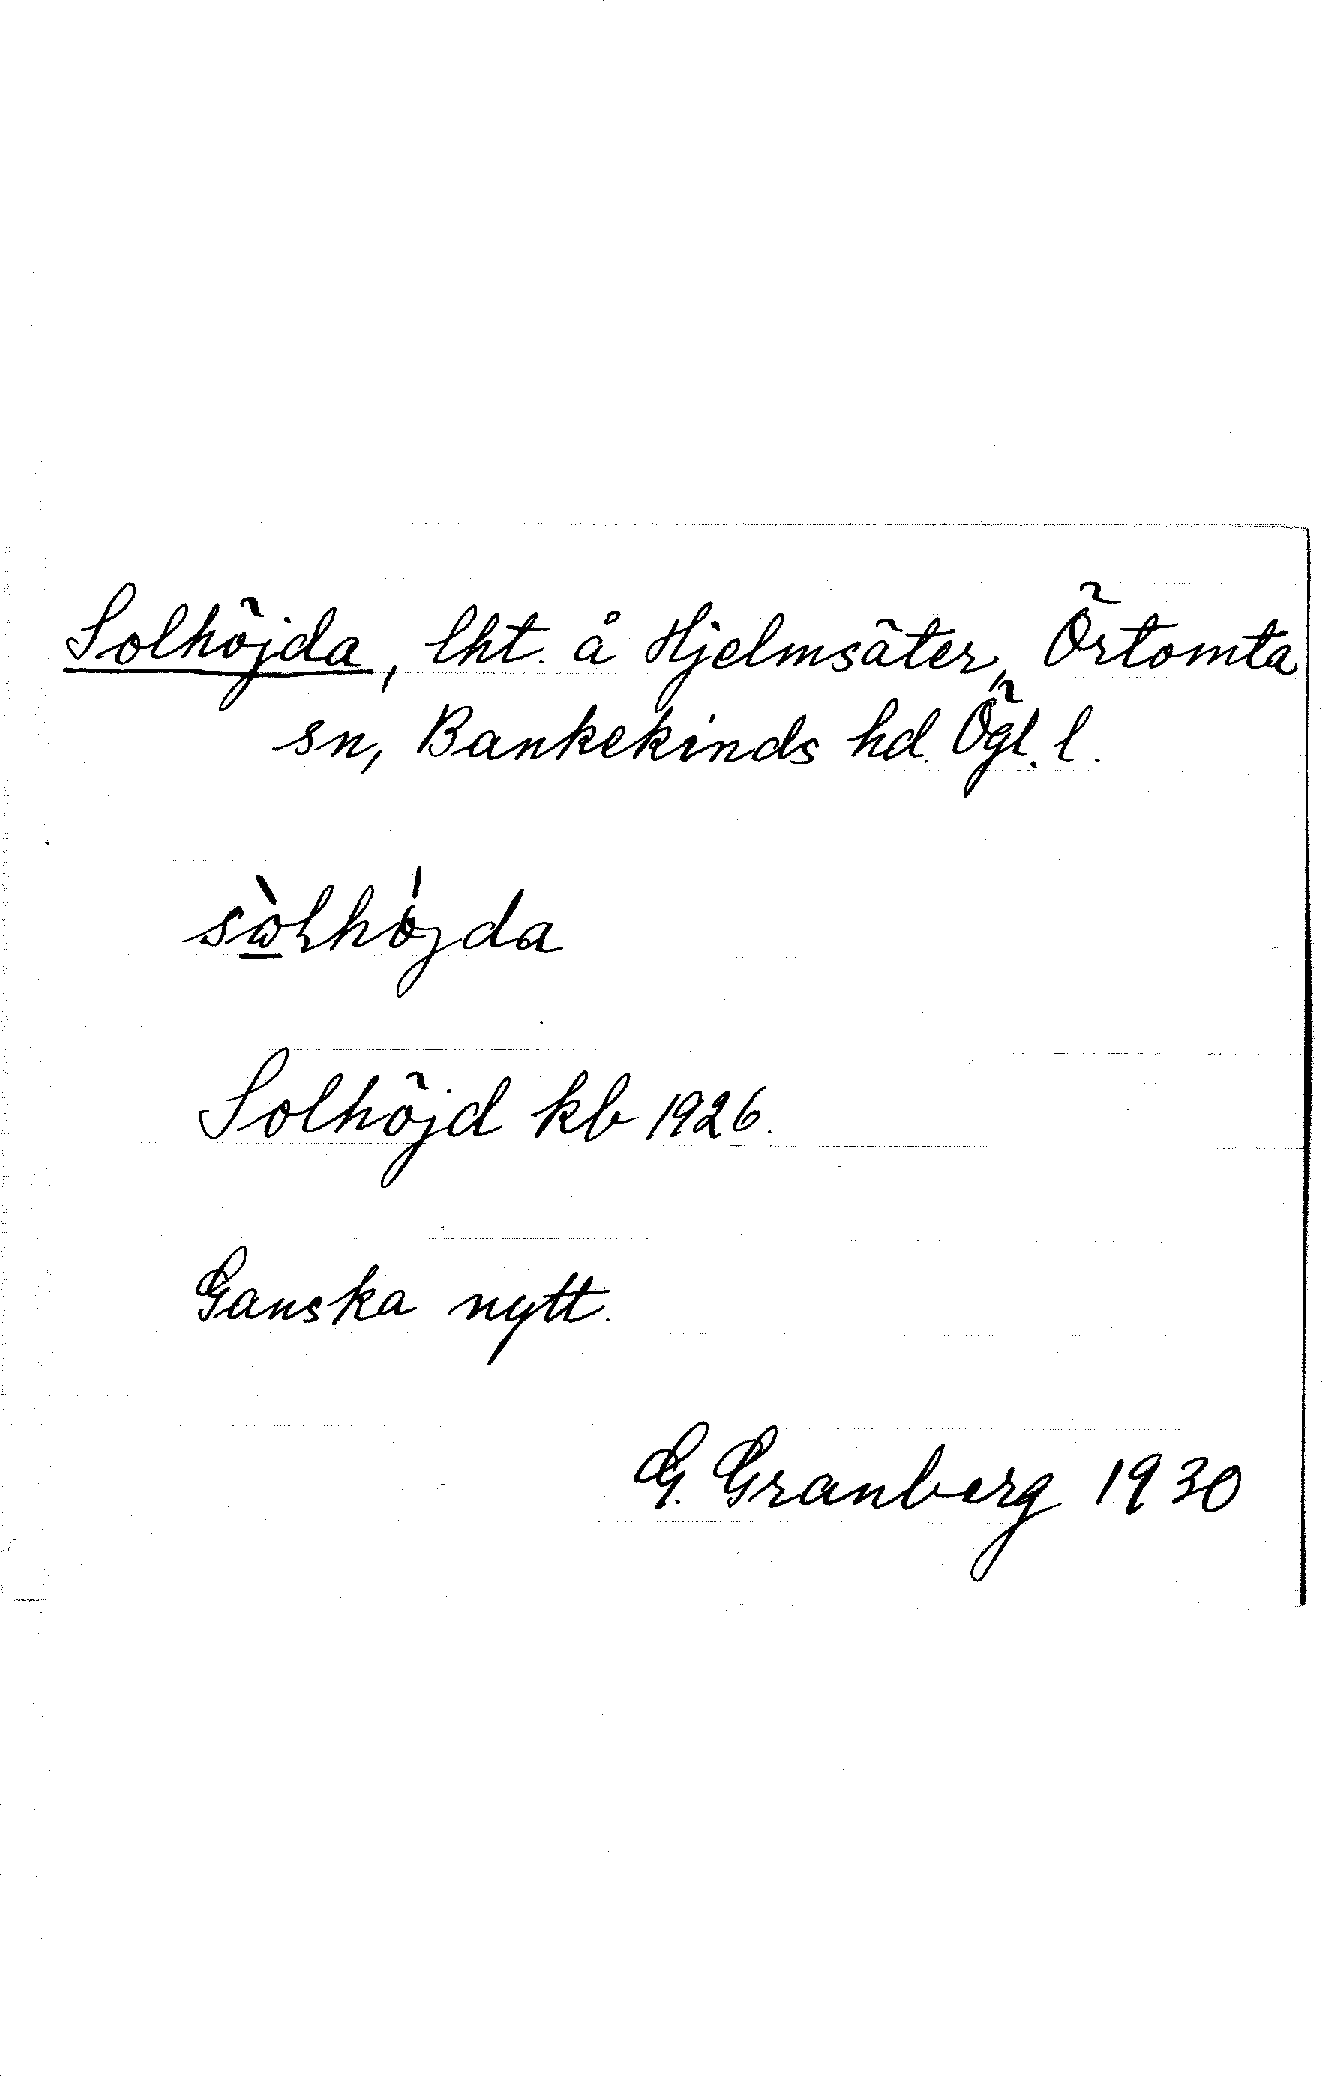 Solhöjda, lht. å Hjelmsäter, Örtomta
sn, Bankekinds hd. Ögl. l.
Solhöjd kb 1926.
Ganska nytt.
G. Granberg 1930